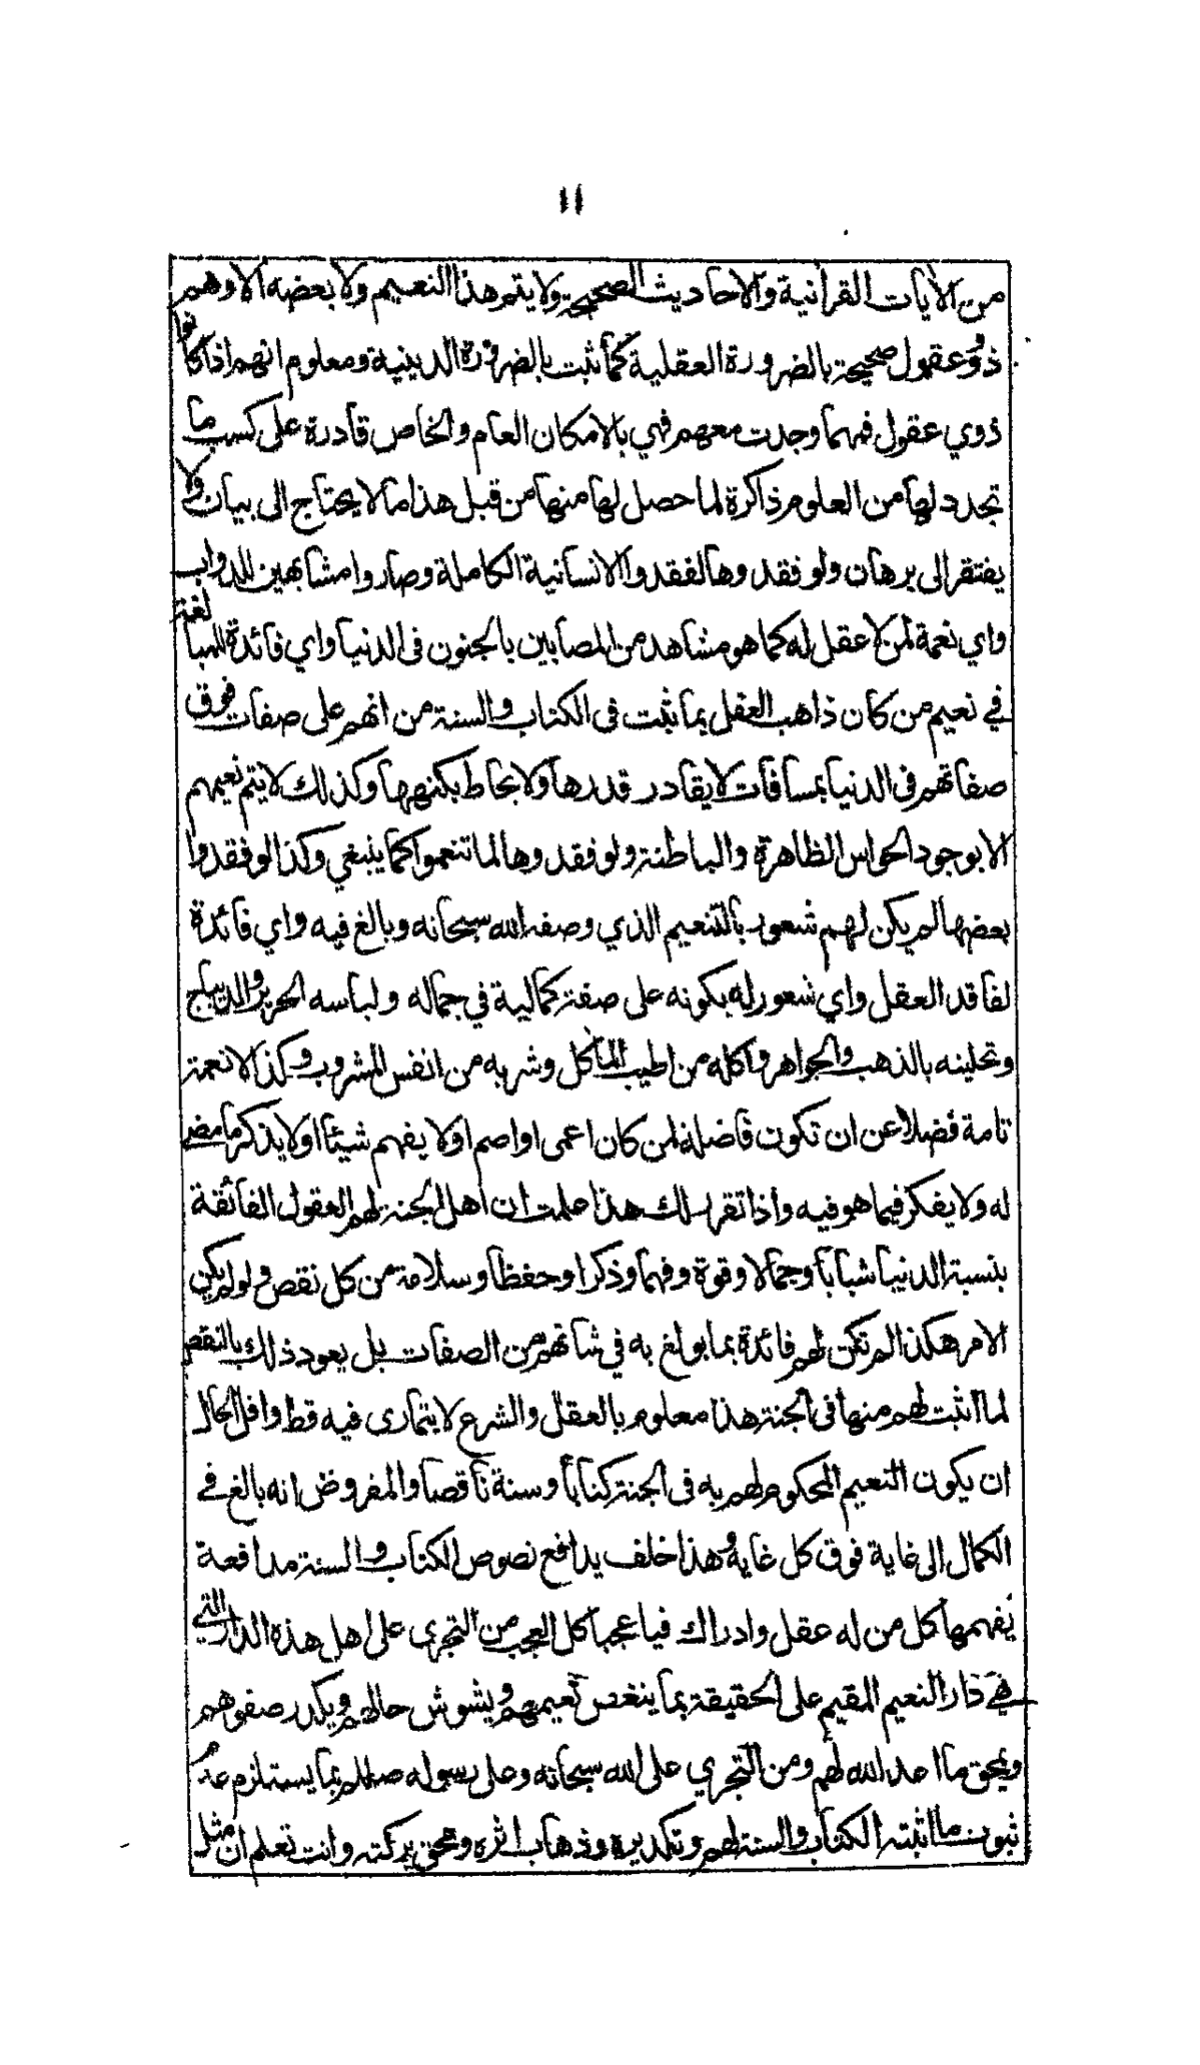 ١١
من الآيات القرآنية والاحاديث الصحيحة ولا يتم هذا النعيم ولا بعضه الا وهم
ذوو عقول صحيحة بالضرورة العقلية كما ثبت بالضرورة الدينية ومعلوم انهم اذا كانوا
ذوي عقول فمهما وجدت معهم فهي بالامكان العام والخاص قادرة على كسب ما
تجدد لها من العلوم ذاكرة لما حصل لها منها من قبل هذا ما لا يحتاج الى بيان ولا
يفتقر الى برهان ولو فقدوها لفقدوا الانسانية الكاملة وصاروا مشابهين للدواب
واي نعمة لمن لا عقل له كما هو مشاهد من المصابين بالجنون فى الدنيا واي فائدة للمبالغة
في نعيم من كان ذاهب العقل بما ثبت فى الكتاب والسنة من انهم على صفات فوق
صفاتهم فى الدنيا بمسافات لا يقادر قدرها ولا يحاط بكنهها وكذلك لا يتم نعيمهم
الا بوجود الحواس الظاهرة والباطنة ولو فقدوها لما تنعموا كما ينبغي وكذا لو فقدوا
بعضها لم يكن لهم شعور بالتنعيم الذي وصفه الله سبحانه وبالغ فيه واي فائدة
لفاقد العقل واي شعور له بكونه على صفة كمالية في جماله ولباسه الحرير والديباج
وتحلينه بالذهب والجواهر واكله من اطيب المآكل وشربه من انفس المشروب وكذا لا نعمة
تامة فضلا عن ان تكون فاضلة لمن كان اعمى او اصم او لا يفهم شيئا او لا يذكر ما مضى
له ولا يفكر فيما هو فيه واذا تقرر لك هذا علمت ان اهل الجنة لهم العقول الفائقة
بنسبة الدنيا شبابا وجمالا وقوة وفهما وذكرا وحفظا وسلامة من كل نقص ولو لم يكن
الامر هكذا لم تكن لهم فائدة بما بولغ به في شانهم من الصفات بل يعود ذلك بالنقص
لما اثبت لهم منها فى الجنة هذا معلوم بالعقل والشرع لا يتمارى فيه قط واقل الحال
ان يكون النعيم المحكوم لهم به فى الجنة كتابا وسنة ناقصا والمفروض انه بالغ في
الكمال الى غاية فوق كل غاية وهذا خلف يدافع نصوص الكتاب والسنة مدافعة
يفهمها كل من له عقل وادراك فيا عجبا كل العجب من التجري على اهل هذه الدار التي
هي دار النعيم المقيم على الحقيقة بما ينغص نعيمهم ويشوش حالهم ويكدر صفوهم
ويمحق ما اعد الله لهم ومن التجري على الله سبحانه وعلى رسوله صللم بما يستلزم عدم
ثبوت ما اثبته الكتاب والسنة لهم وتكديره وذهاب اثره ومحق بركته وانت تعلم ان مثل